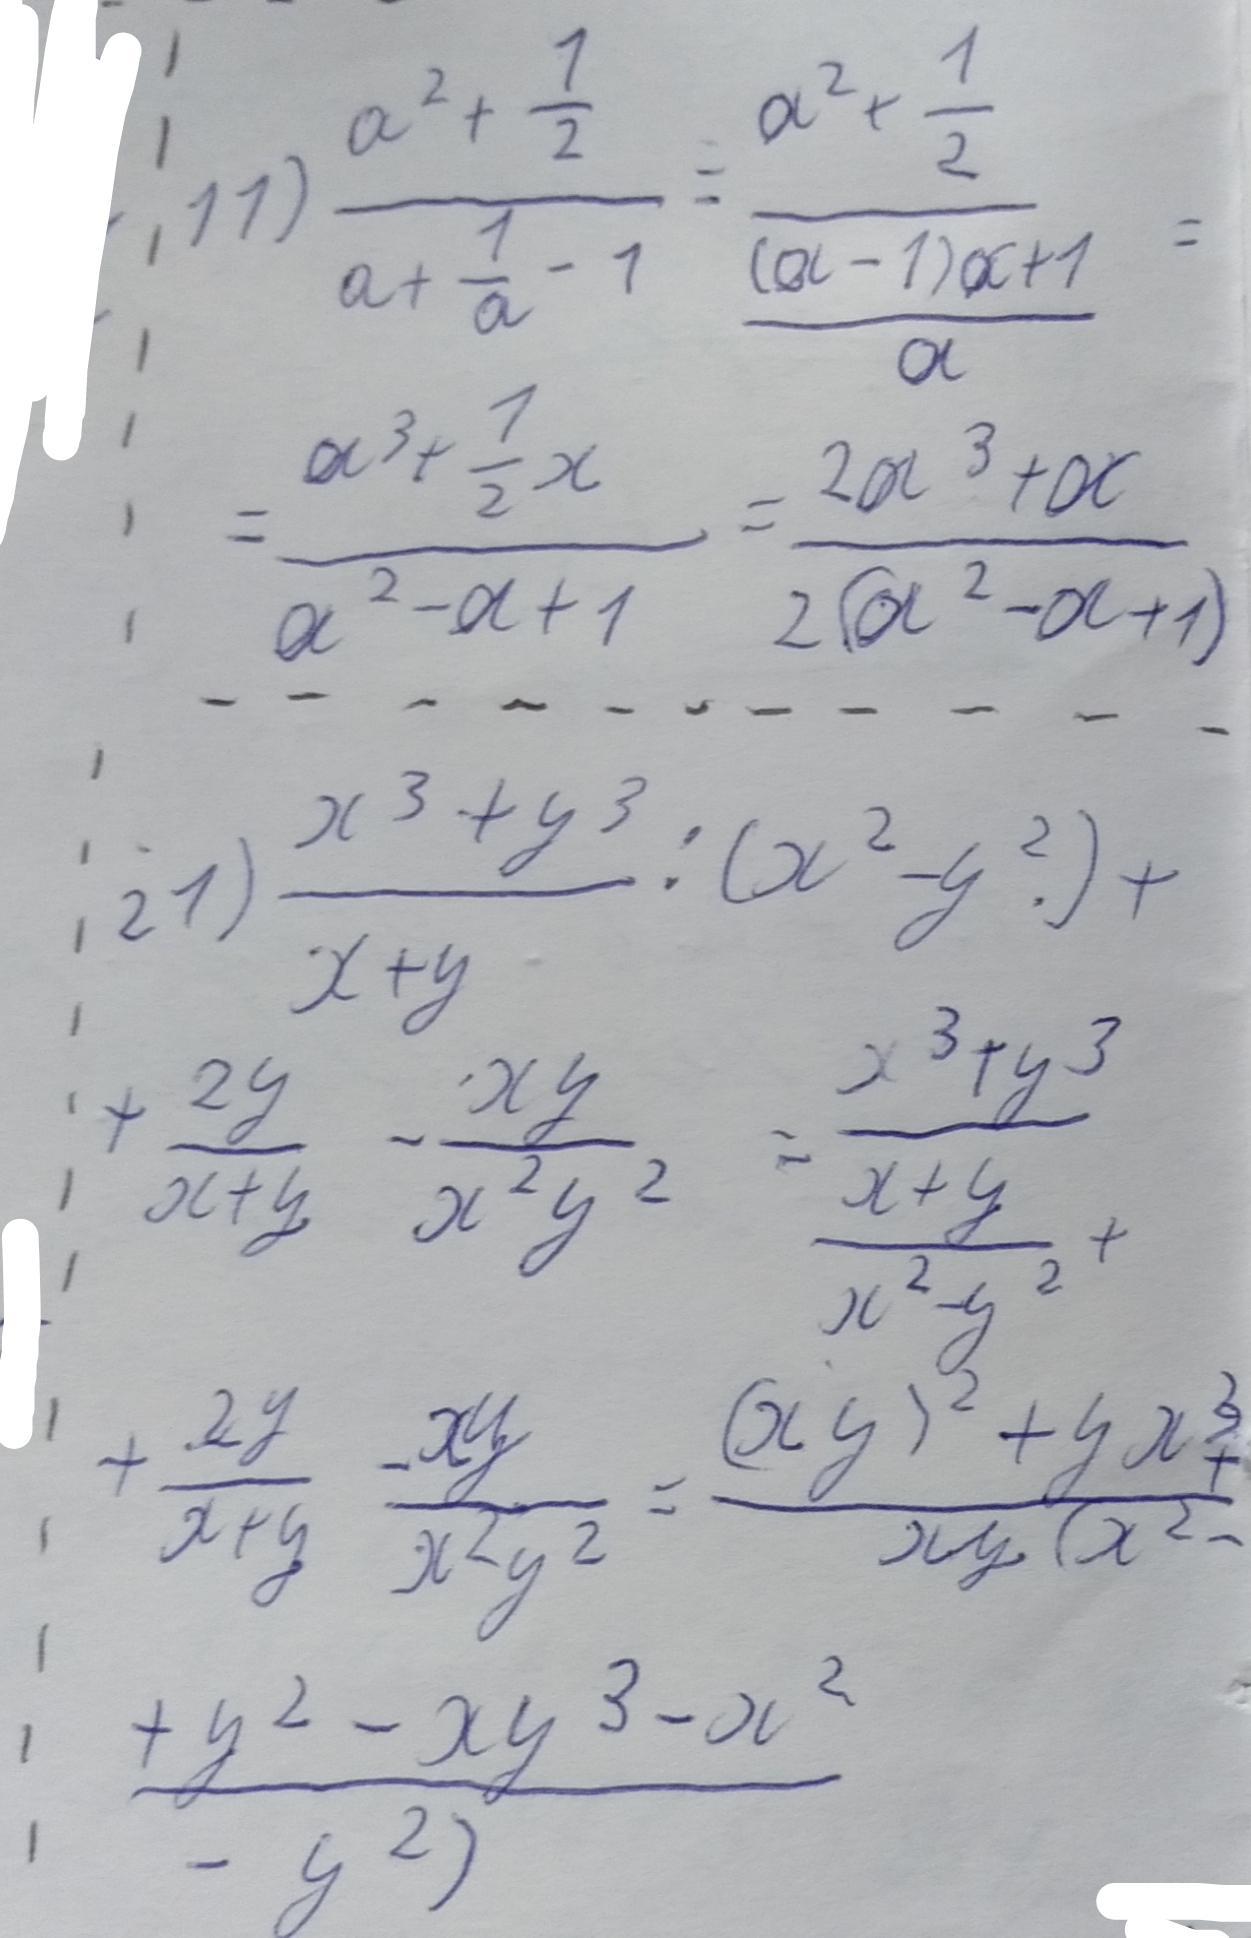 11) (a² + 1/2)/(a + 1/a - 1) = (a² + 1/2)/(((a - 1)a + 1)/a) =
= (a³ + 1/2 x)/(a² - a + 1) = (2a³ + a)/(2(a² - a + 1))
21) (x³ + y³)/(x + y) : (x² - y²) +
+ 2y/(x + y) - xy/(x²y²) = ((x³ + y³)/(x + y))/(x² - y²) +
+ 2y/(x + y) - xy/(x²y²) = ((xy)² + yx³ +)/(xy(x² -)
(+ y² - xy³ - x²)/(- y²)